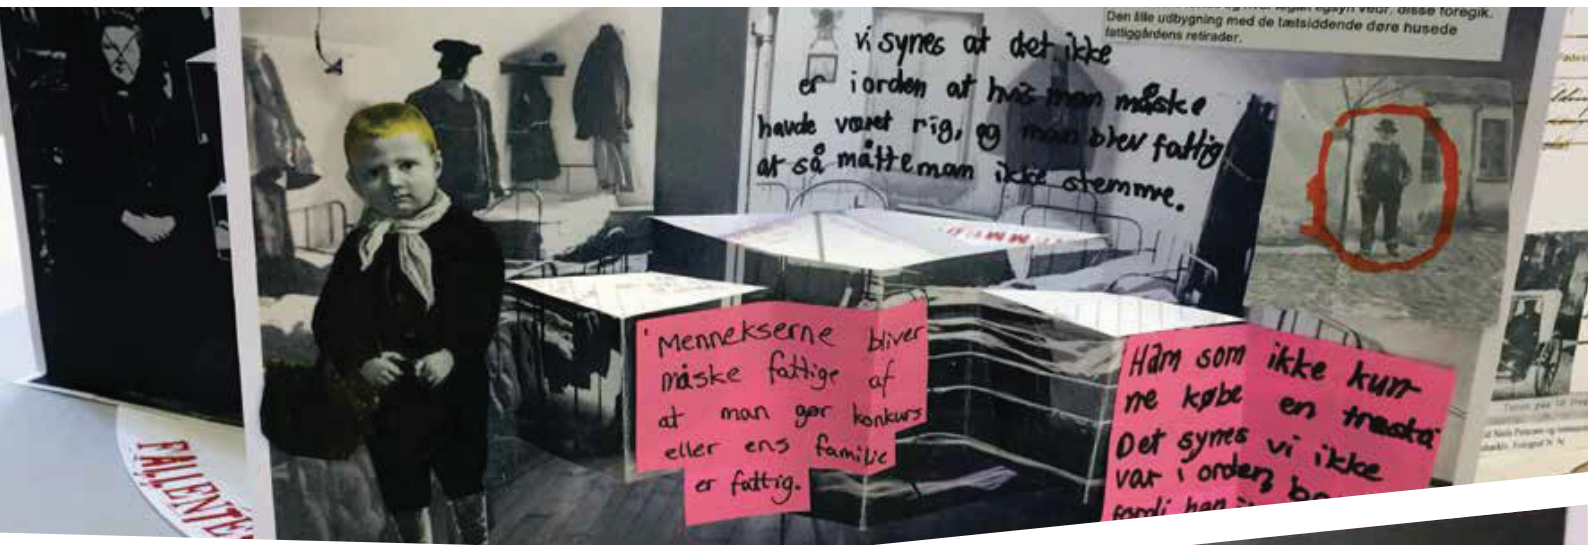 Den lille udbygning med de tætsiddende døre husede
fattiggårdens retirader.
vi synes at det ikke
er i orden at hvis man måske
havde været rig, og man blev fattig
at så måtte man ikke stemme.
Mennekserne bliver
måske fattige af
at man gør konkurs
eller ens familie
er fattig.
Ham som ikke kun-
ne købe en træska
Det synes vi ikke
var i orden,
fordi han
FALLENTE